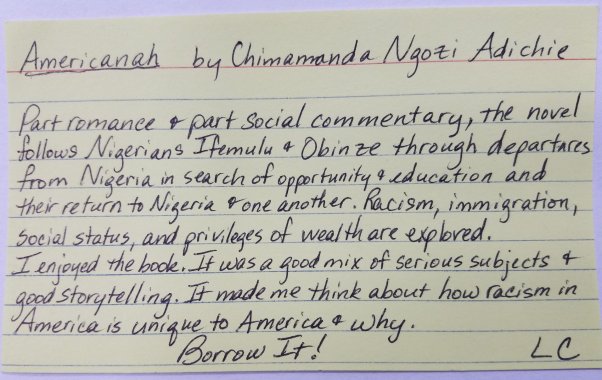 Americanah by Chimamanda Ngozi Adichie
Part romance & part social commentary, the novel
follows Nigerians Ifemulu & Obinze through departures
from Nigeria in search of opportunity & education and
their return to Nigeria & one another. Racism, immigration,
social status, and privileges of wealth are explored.
I enjoyed the book. It was a good mix of serious subjects &
good storytelling. It made me think about how racism in
America is unique to America & why.
Borrow It! LC